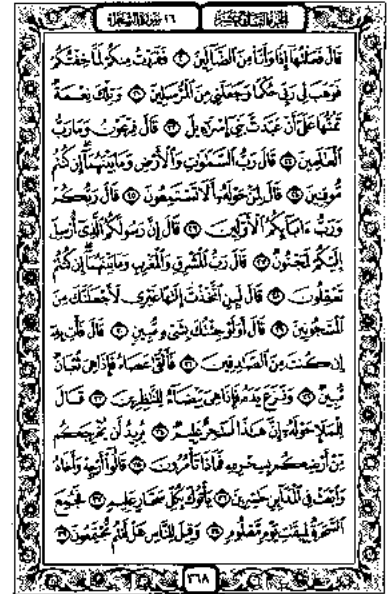 الجزء التاسع عشر ٢٦ سورة الشعراء
قَالَ فَعَلْتُهَا إِذًا وَأَنَا مِنَ الضَّالِّينَ ٢٠ فَفَرَرْتُ مِنكُمْ لَمَّا خِفْتُكُمْ
فَوَهَبَ لِي رَبِّي حُكْمًا وَجَعَلَنِي مِنَ الْمُرْسَلِينَ ٢١ وَتِلْكَ نِعْمَةٌ
تَمُنُّهَا عَلَيَّ أَنْ عَبَّدتَّ بَنِي إِسْرَائِيلَ ٢٢ قَالَ فِرْعَوْنُ وَمَا رَبُّ
الْعَالَمِينَ ٢٣ قَالَ رَبُّ السَّمَاوَاتِ وَالْأَرْضِ وَمَا بَيْنَهُمَا إِن كُنتُم
مُّوقِنِينَ ٢٤ قَالَ لِمَنْ حَوْلَهُ أَلَا تَسْتَمِعُونَ ٢٥ قَالَ رَبُّكُمْ
وَرَبُّ آبَائِكُمُ الْأَوَّلِينَ ٢٦ قَالَ إِنَّ رَسُولَكُمُ الَّذِي أُرْسِلَ
إِلَيْكُمْ لَمَجْنُونٌ ٢٧ قَالَ رَبُّ الْمَشْرِقِ وَالْمَغْرِبِ وَمَا بَيْنَهُمَا إِن كُنتُمْ
تَعْقِلُونَ ٢٨ قَالَ لَئِنِ اتَّخَذْتَ إِلَٰهًا غَيْرِي لَأَجْعَلَنَّكَ مِنَ
الْمَسْجُونِينَ ٢٩ قَالَ أَوَلَوْ جِئْتُكَ بِشَيْءٍ مُّبِينٍ ٣٠ قَالَ فَأْتِ بِهِ
إِن كُنتَ مِنَ الصَّادِقِينَ ٣١ فَأَلْقَىٰ عَصَاهُ فَإِذَا هِيَ ثُعْبَانٌ
مُّبِينٌ ٣٢ وَنَزَعَ يَدَهُ فَإِذَا هِيَ بَيْضَاءُ لِلنَّاظِرِينَ ٣٣ قَالَ
لِلْمَلَإِ حَوْلَهُ إِنَّ هَٰذَا لَسَاحِرٌ عَلِيمٌ ٣٤ يُرِيدُ أَن يُخْرِجَكُم
مِّنْ أَرْضِكُم بِسِحْرِهِ فَمَاذَا تَأْمُرُونَ ٣٥ قَالُوا أَرْجِهْ وَأَخَاهُ
وَابْعَثْ فِي الْمَدَائِنِ حَاشِرِينَ ٣٦ يَأْتُوكَ بِكُلِّ سَحَّارٍ عَلِيمٍ ٣٧ فَجُمِعَ
السَّحَرَةُ لِمِيقَاتِ يَوْمٍ مَّعْلُومٍ ٣٨ وَقِيلَ لِلنَّاسِ هَلْ أَنتُم مُّجْتَمِعُونَ ٣٩
٣٦٨